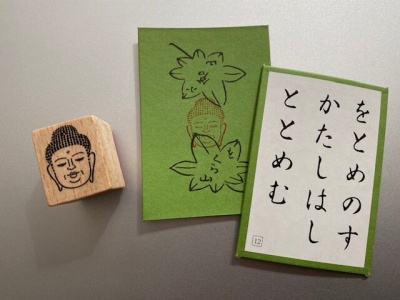 をくら山
をとめのす
かたしはし
ととめむ
12